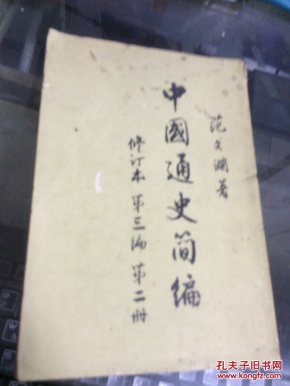 范文澜著
中國通史简编
修订本 第三编 第二册
孔夫子旧书网